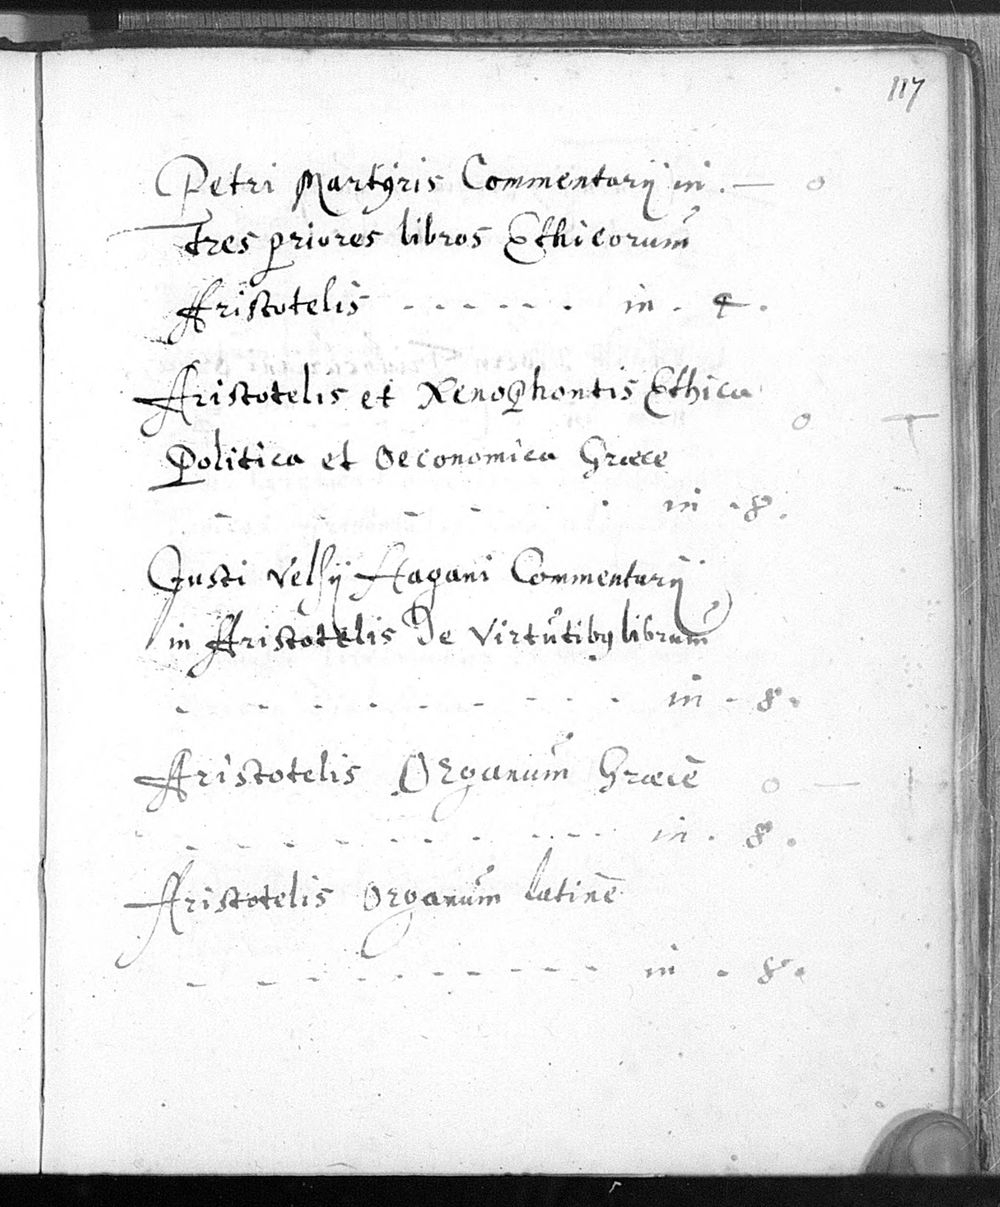 117
Petri Martyris Commentarij in . — o
tres priores libros Ethicorum
Aristotelis - - - - - . in . 4 .
Aristotelis et Xenophontis Ethica
o
Politica et Oeconomica Græce
- - - - . . in . 8 .
Justi Velsij Hagani Commentarij
in Aristotelis De Virtutibq librum
- - - - - - - - . in - 8 .
Aristotelis Organum Græcè
o —
- - - - - - - - - - in . 8 .
Aristotelis Organum latinè
- - - - - - - - - - in . 8 .